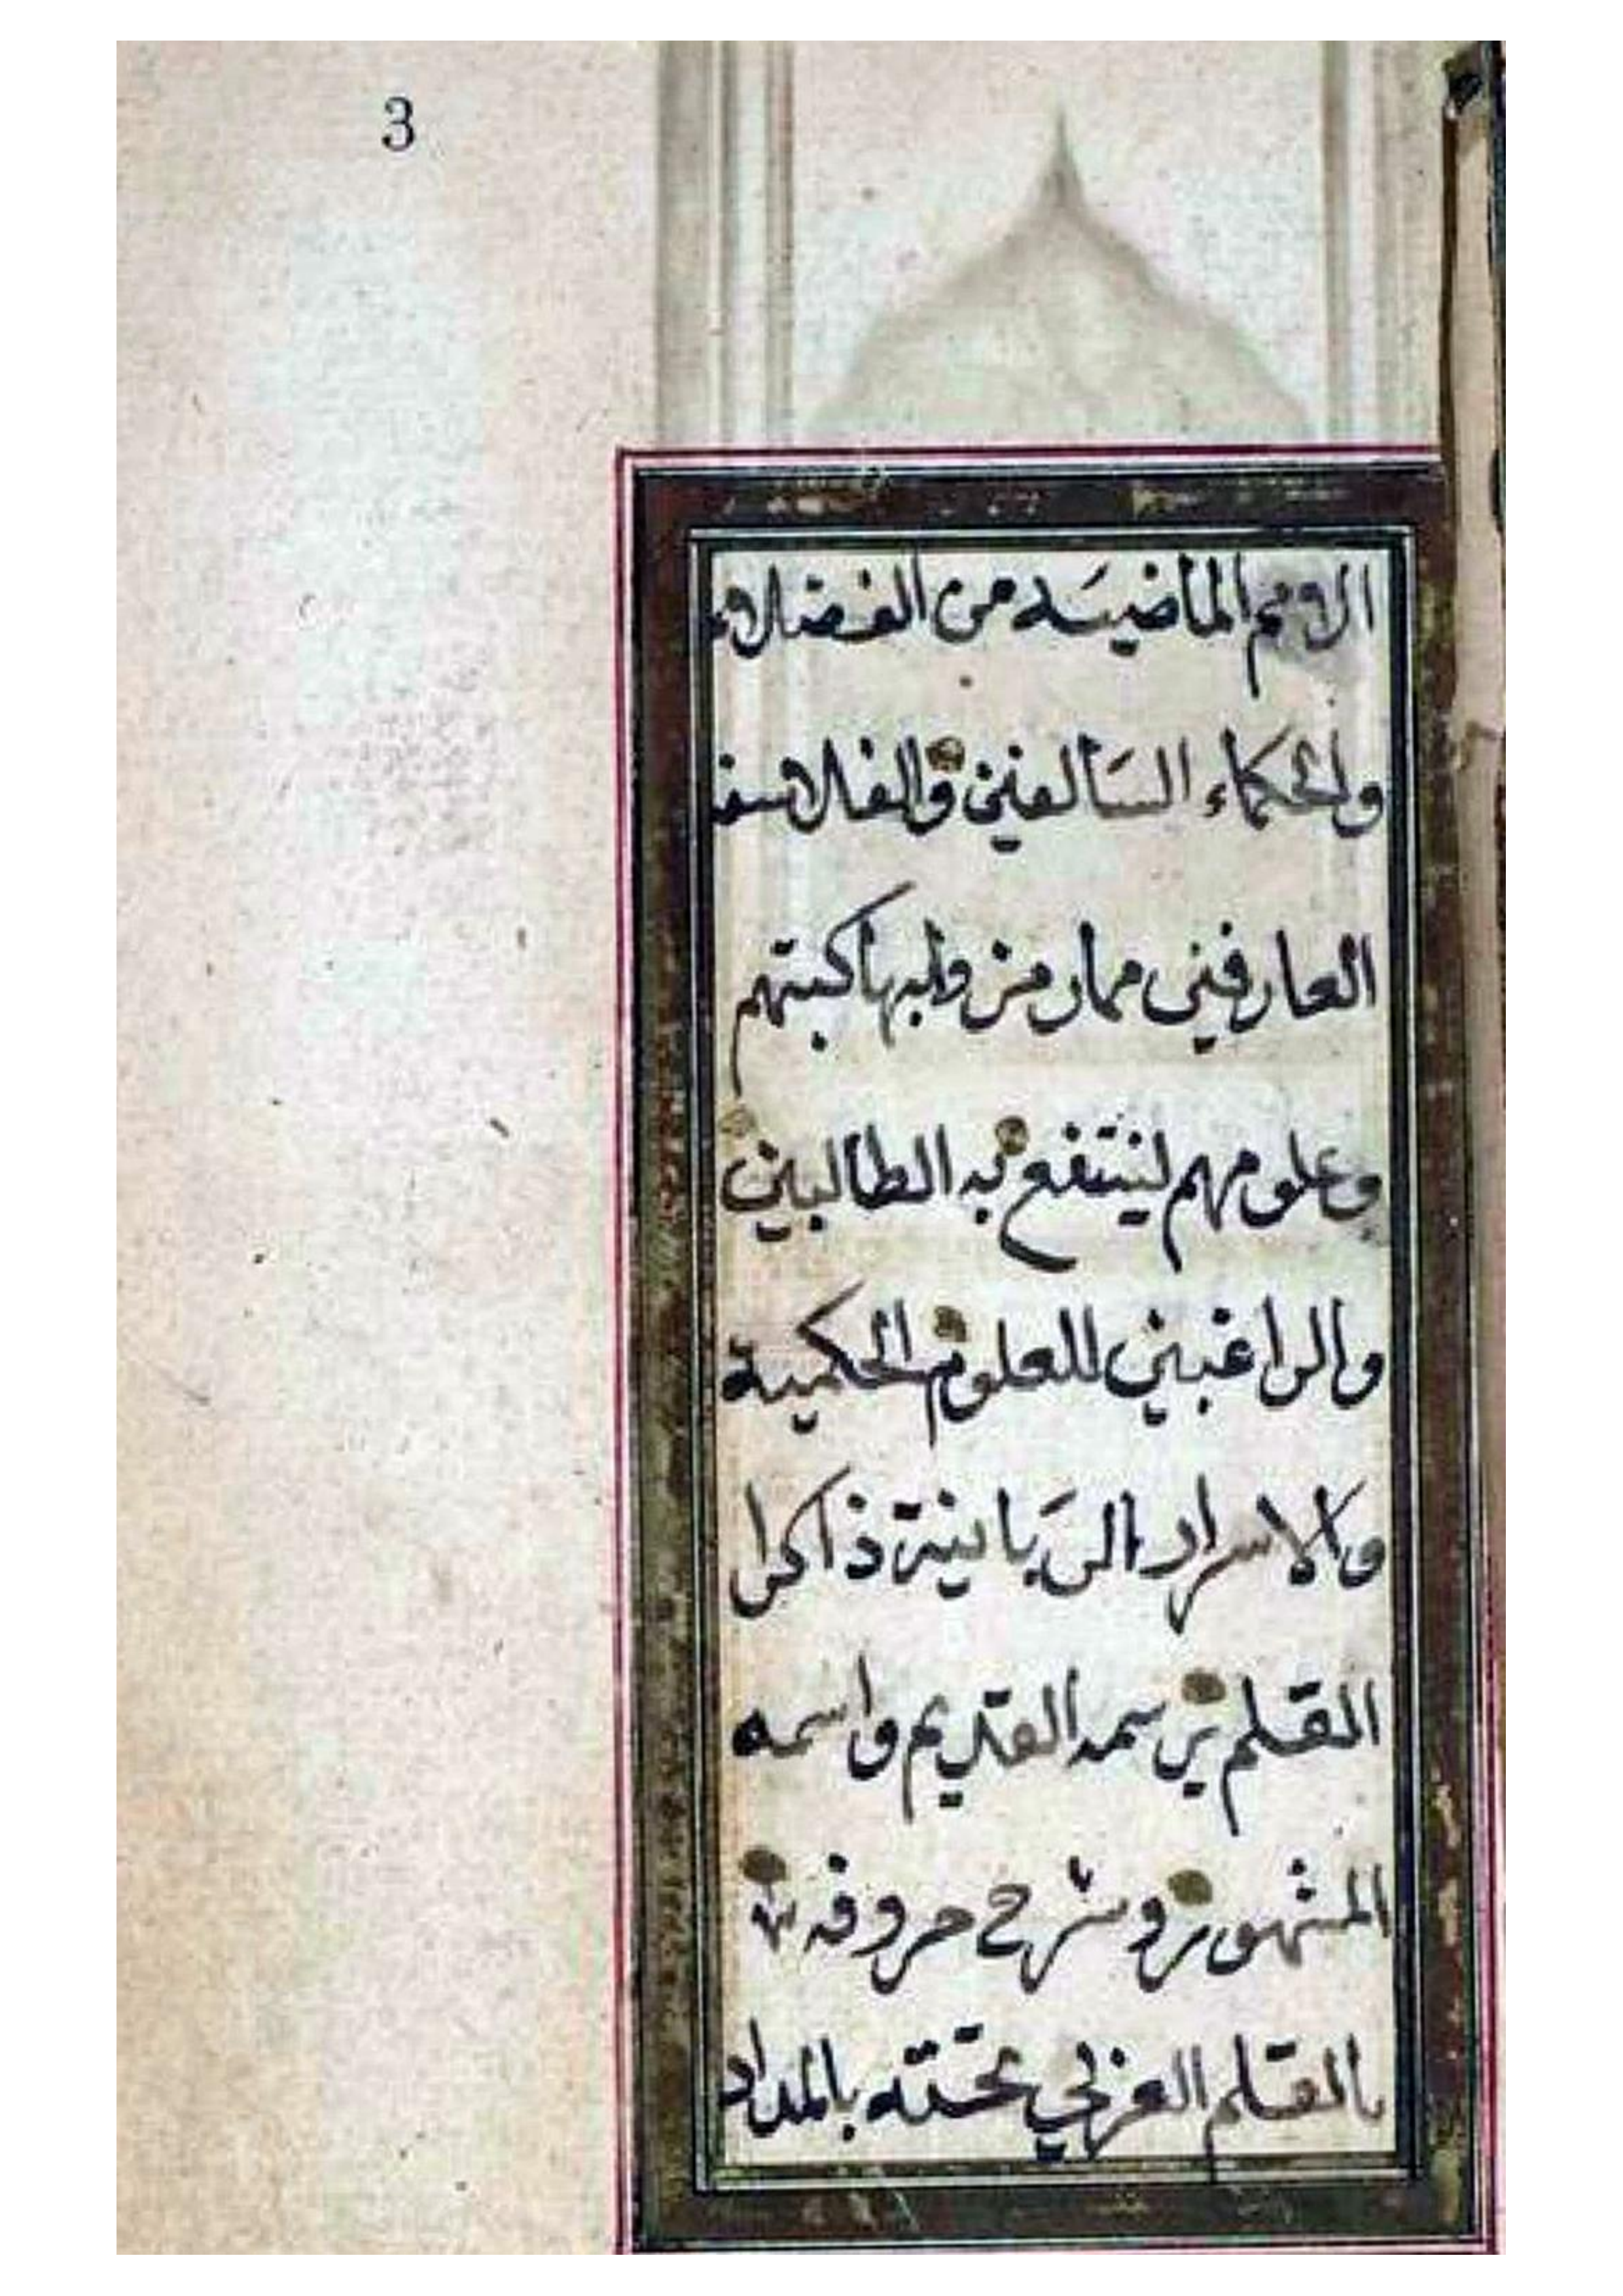 3
الامم الماضيه من الفضلاء
والحكماء السالفين والفلاسفة
العارفين مما رمزوا بها كتبهم
وعلومهم لينتفع به الطالبين
والراغبين للعلوم الحكمية
والاسرار الربانية ذاكرا
القلم برسمه القديم واسمه
المشهور وشرح حروفه
بالقلم العربي تحته بالمداد